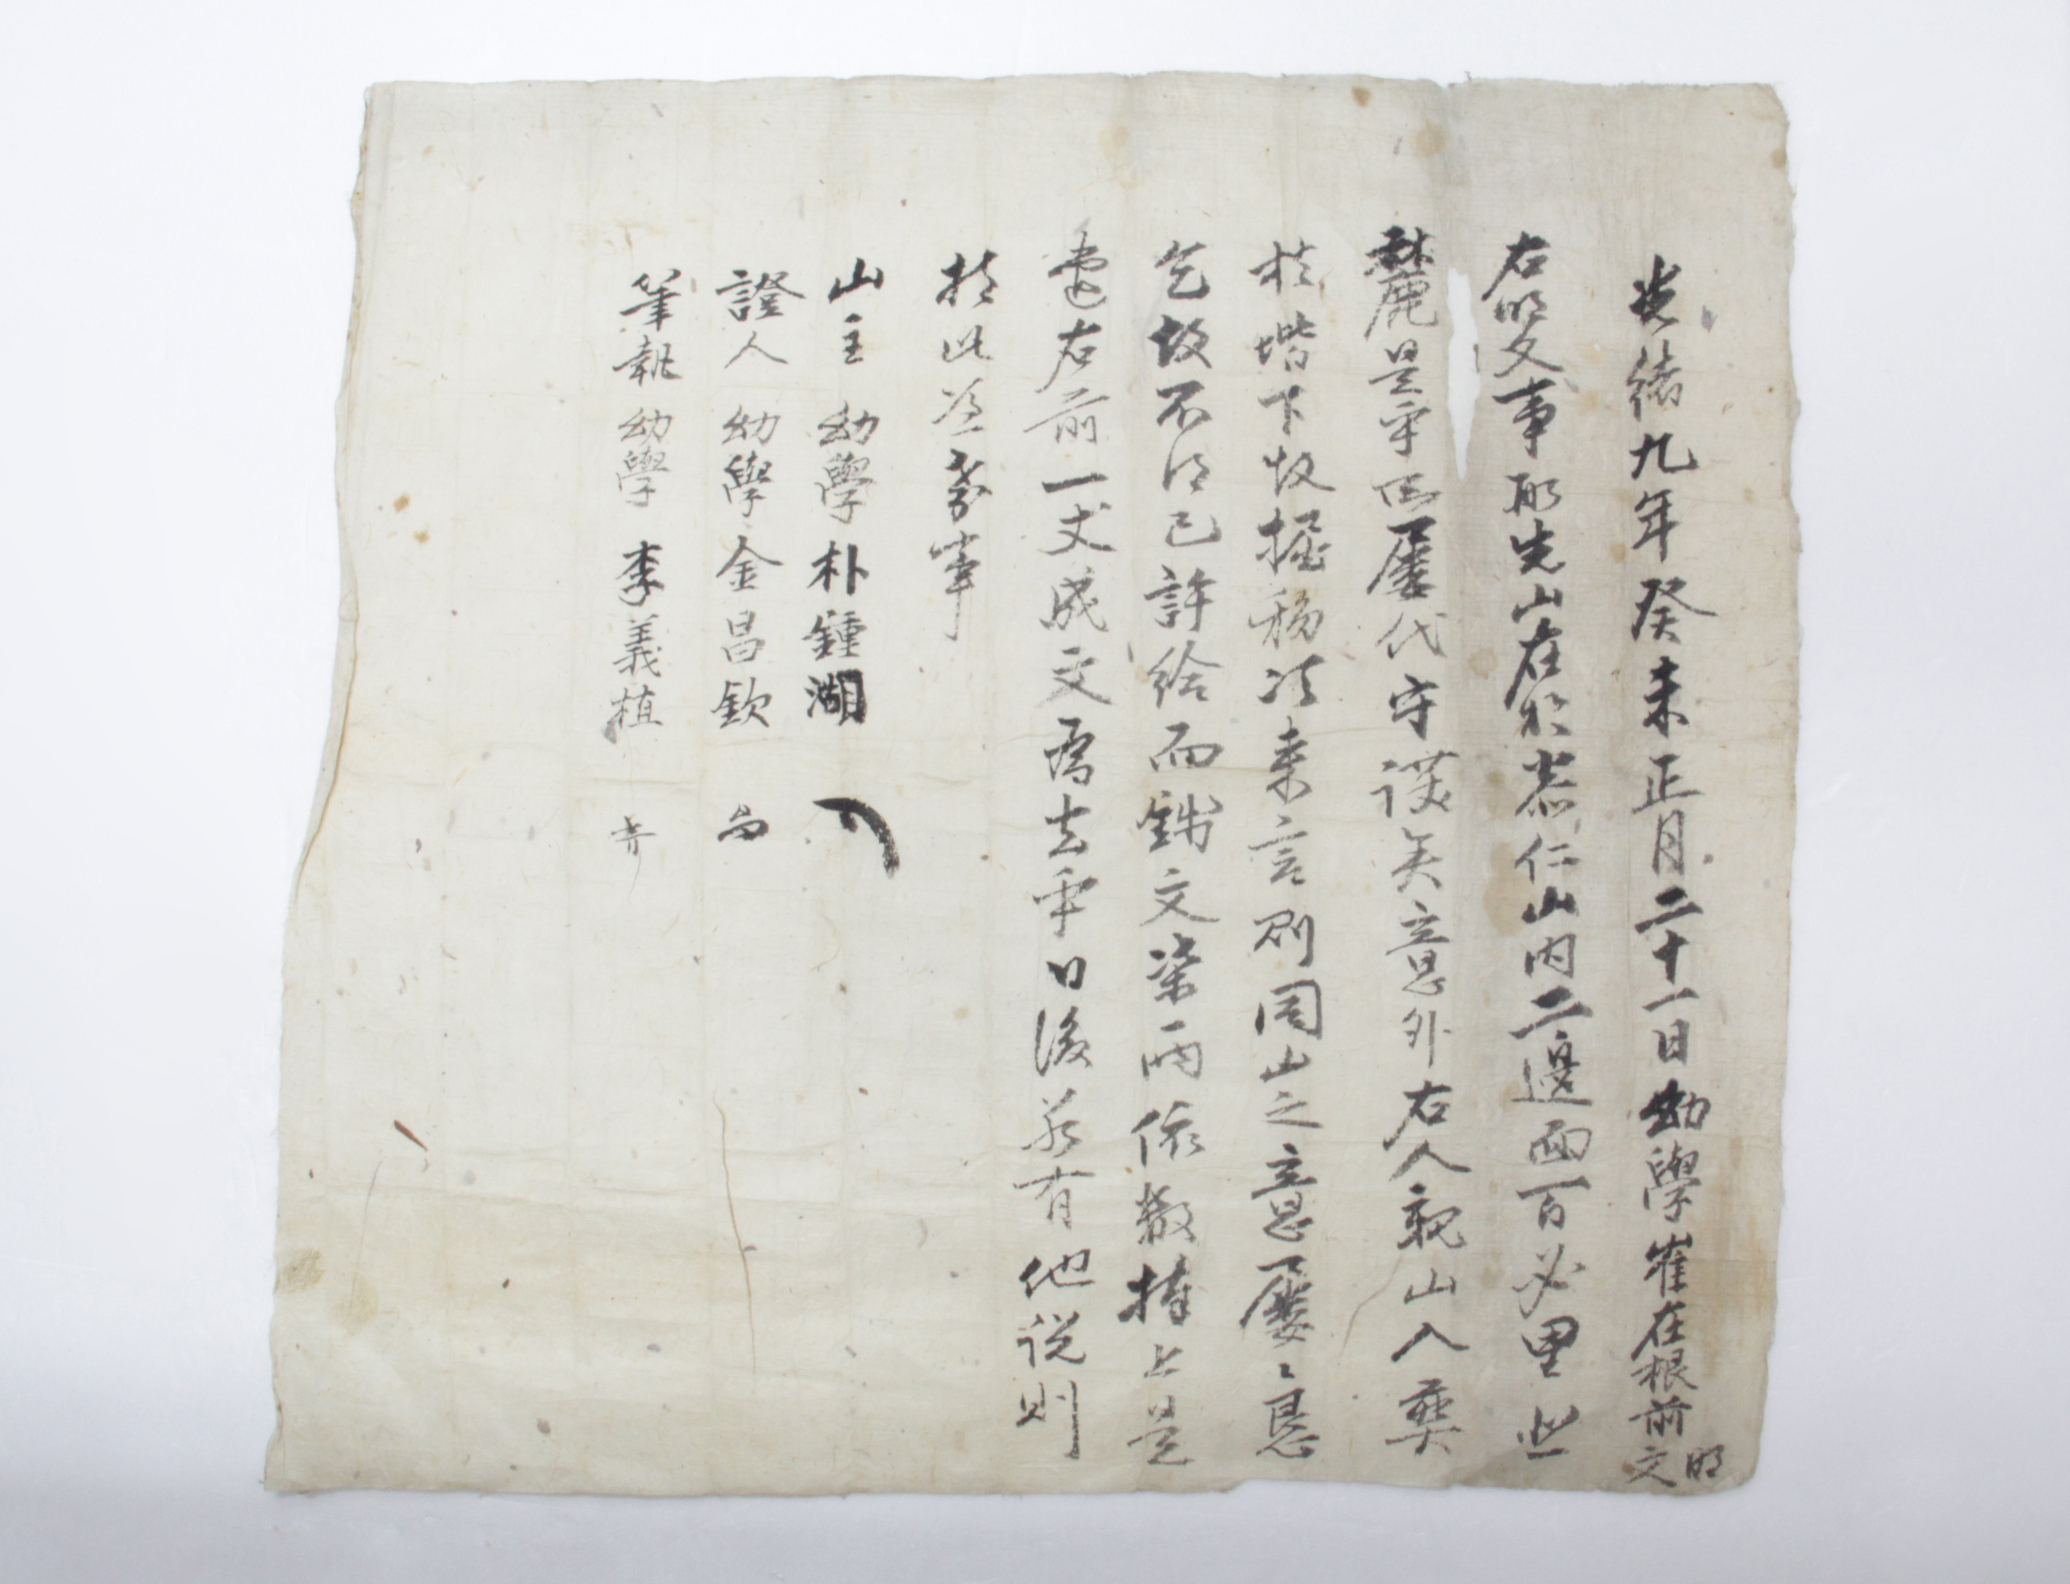 光緖九年癸未正月二十一日幼學崔在根前明文
右明文事段先山在於恭仁山內二邊面百必里 此
麓是乎所屢代守護矣意外右人親山入葬
於階下故掘移次來言則同山之意屢〻懇
乞故不得已許給而錢文柒兩依數捧上是
遣右前一丈成文爲去乎日後若有他說則
持此憑考事
山主 幼學 朴鍾湖
證人 幼學 金昌欽
筆執 幼學 李義植